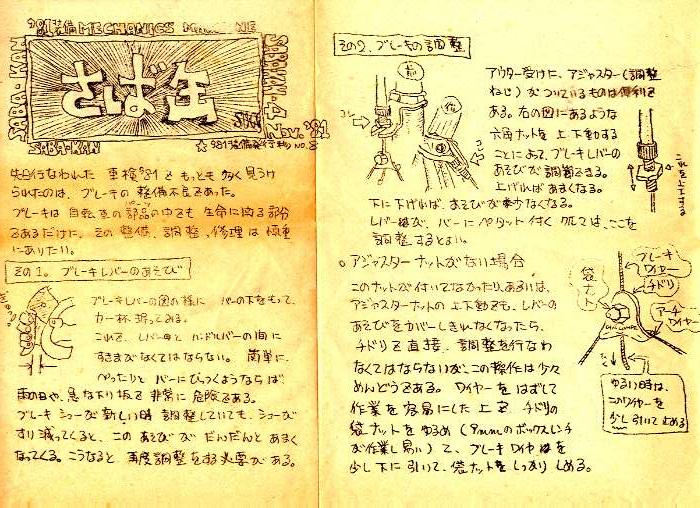 '81整備 MECHANICS MAGAZINE
さば缶
SABA-KAN
SABAKAN-4
SABA-KAN
Nov. '81
☆ '81整備発行 No.8
先日行なわれた 車検'81 で もっとも 多く 見うけ
られたのは、ブレーキの 整備不良であった。
ブレーキは 自転車の 部品の中でも 生命に関る部分
であるだけに、その 整備、調整、修理 は 慎重
にありたい。
その1。ブレーキレバーのあそび
ブレーキレバーの図の様に バーの下をもって、
力一杯 握ってみる。
これで、レバーと ハンドルバーの 間に
すきまがなくてはならない。簡単に、
ぺったりと バーにひっつくようならば、
雨の日や、急な下り坂で 非常に 危険である。
ブレーキシューが新しい時 調整していても、シューが
すり減ってくると、この あそびが だんだんと あまく
なってくる。こうなると 再度調整をする必要がある。
その2. ブレーキの調整
前
後
コレ
コレ
アウター受けに、アジャスター(調整
ねじ)が ついているものは便利で
ある。右の図にあるような
六角ナットを 上下動する
ことによって、ブレーキレバーの
あそびが 調節できる。
上げれば あまくなる。
下に下げれば、あそびが少なくなる。
レバーが、バーに ペタッと 付く クルマは、ここを
調整するとよい。
これを上下する
○ アジャスターナットがない場合
このナットが付いてなかったり、あるいは、
アジャスターナットの上下動でも、レバーの
あそびをカバーしきれなくなったら、
チドリ を 直接、調整を行なわ
なくてはならないが、この操作は少々
めんどうである。ワイヤーを はずして
作業を容易にした 上で、チドリの
袋ナットをゆるめ (8mmのボックスレンチ
が作業し易い) て、ブレーキワイヤーを
少し下に引いて、袋ナットをしっかりしめる。
ブレーキ
ワイヤー
チドリ
袋ナット
アーチ
ワイヤー
DIA-COMPE
ゆるい時は、
このワイヤーを
少し引いて止める